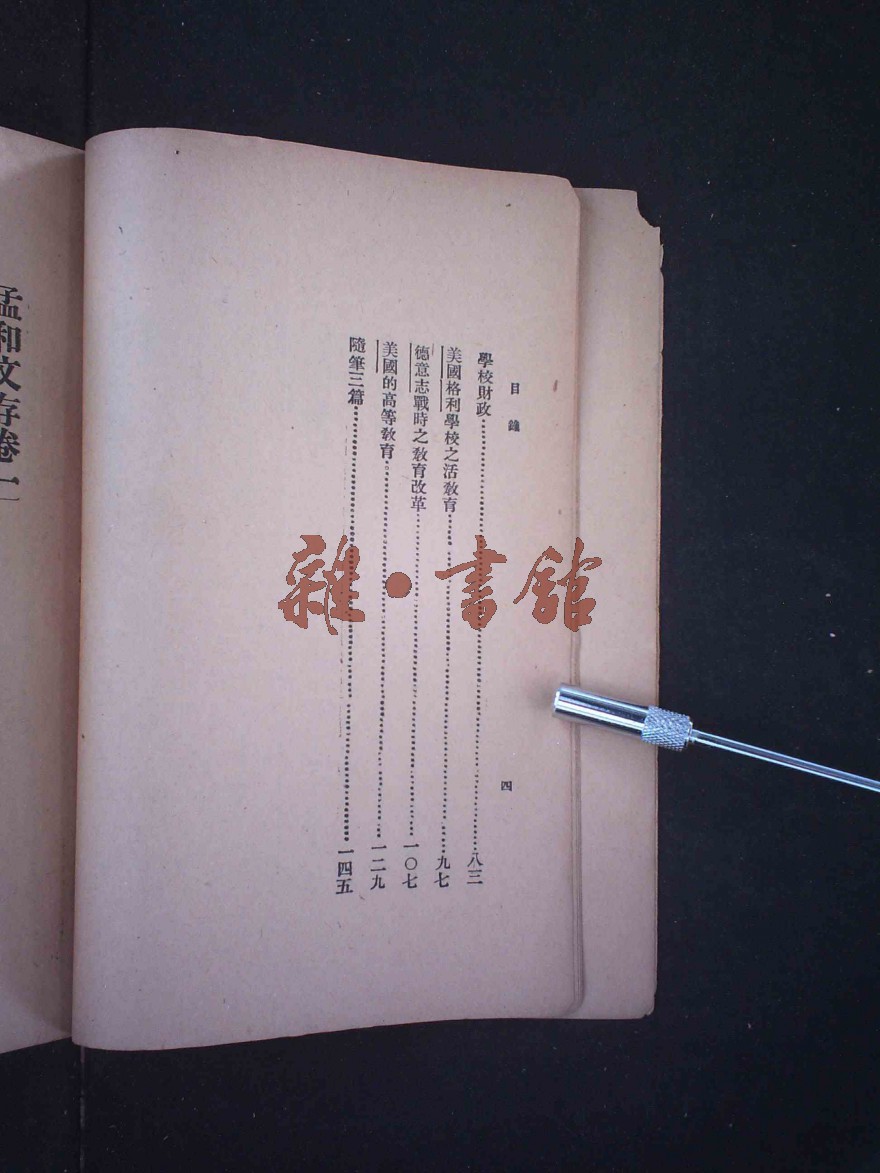 目錄
四
學校財政 八三
美國格利學校之活教育 九七
德意志戰時之教育改革 一〇七
美國的高等教育 一二九
隨筆三篇 一四五
孟和文存卷一
雜·書館